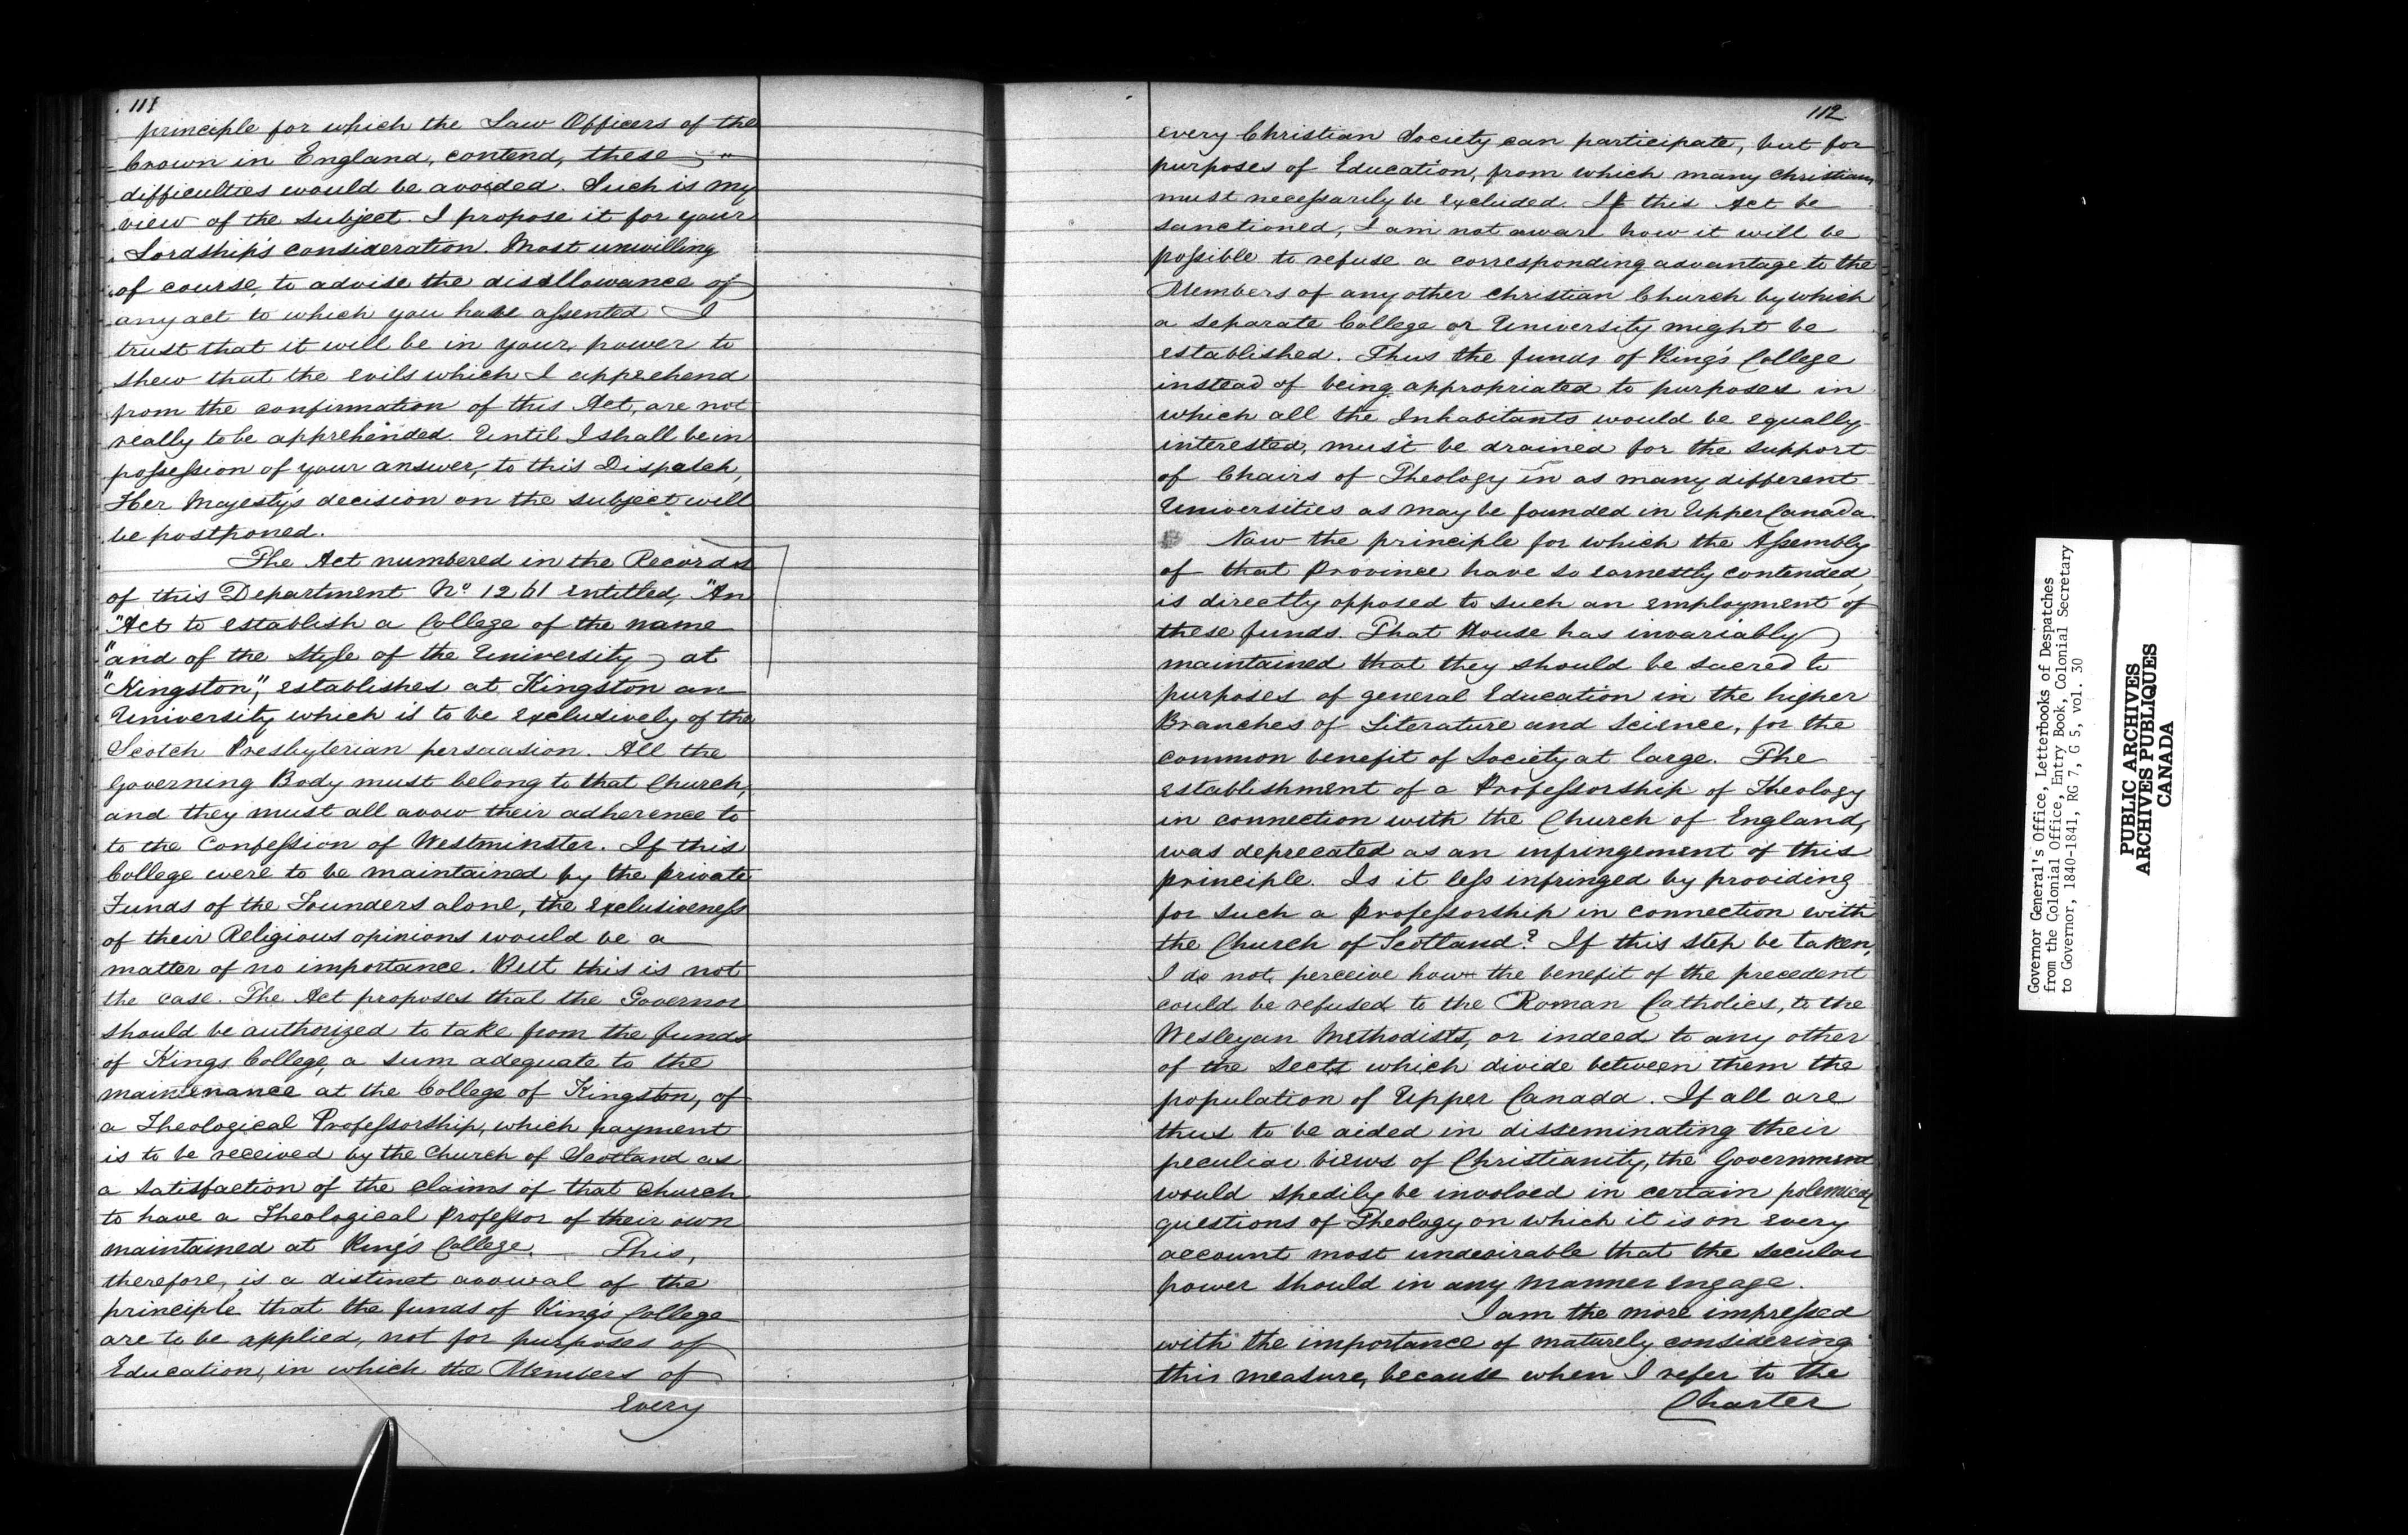 111
principle for which the Law Officers of the
Crown in England, contend, these
difficulties would be avoided. Such is my
view of the subject. I propose it for your
Lordship's consideration. Most unwilling
of course, to advise the disallowance of
any act to which you have assented I
trust that it will be in your power to
shew that the evils which I apprehend
from the confirmation of this Act, are not
really to be apprehended. Until I shall be in
possession of your answer, to this Dispatch,
Her Majesty's decision on the subject will
be postponed.
The Act numbered in the Records
of this Department No 1261 entitled, "An
"Act to establish a College of the name
"and of the Style of the University at
"Kingston", establishes at Kingston an
University which is to be exclusively of the
Scotch Presbyterian persuasion. All the
Governing Body must belong to that Church,
and they must all avow their adherence to
to the Confession of Westminster. If this
College were to be maintained by the private
Funds of the Founders alone, the exclusiveness
of their Religious opinions would be a
matter of no importance. But this is not
the case. The Act proposes that the Governor
should be authorized to take from the funds
of Kings College, a sum adequate to the
maintenance at the College of Kingston, of
a Theological Professorship, which payment
is to be received by the Church of Scotland as
a satisfaction of the claims of that Church
to have a Theological Professor of their own
maintained at King's College. This,
therefore, is a distinct avowal of the
principle that the funds of King's College
are to be applied, not for purposes of
Education, in which the Members of
Every
112
every Christian Society can participate, but for
purposes of Education, from which many Christians
must necessarily be excluded. If this Act be
sanctioned, I am not aware how it will be
possible to refuse a corresponding advantage to the
Members of any other Christian Church by which
a separate College or University might be
established. Thus the funds of King's College
instead of being appropriated to purposes in
which all the Inhabitants would be equally
interested, must be drained for the support
of Chairs of Theology in as many different
Universities as may be founded in Upper Canada.
Now the principle for which the Assembly
of that Province have so earnestly contended,
is directly opposed to such an employment of
these funds. That House has invariably
maintained that they should be sacred to
purposes of general Education in the higher
Branches of Literature and Science, for the
common benefit of Society at large. The
establishment of a Professorship of Theology
in connection with the Church of England,
was deprecated as an infringement of this
principle. Is it less infringed by providing
for such a Professorship in connection with
the Church of Scotland? If this step be taken,
I do not, perceive how the benefit of the precedent
could be refused to the Roman Catholics, to the
Wesleyan Methodists, or indeed to any other
of the Sects which divide between them the
population of Upper Canada. If all are
thus to be aided in disseminating their
peculiar views of Christianity, the Government
would spedily be involved in certain polemical
questions of Theology on which it is on every
account most undesirable that the secular
power should in any manner engage.
I am the more impressed
with the importance of maturely considering
this measure, because when I refer to the
Charter
Governor General's Office, Letterbooks of Despatches
from the Colonial Office, Entry Book, Colonial Secretary
to Governor, 1840-1841, RG 7, G 5, vol. 30
PUBLIC ARCHIVES
ARCHIVES PUBLIQUES
CANADA